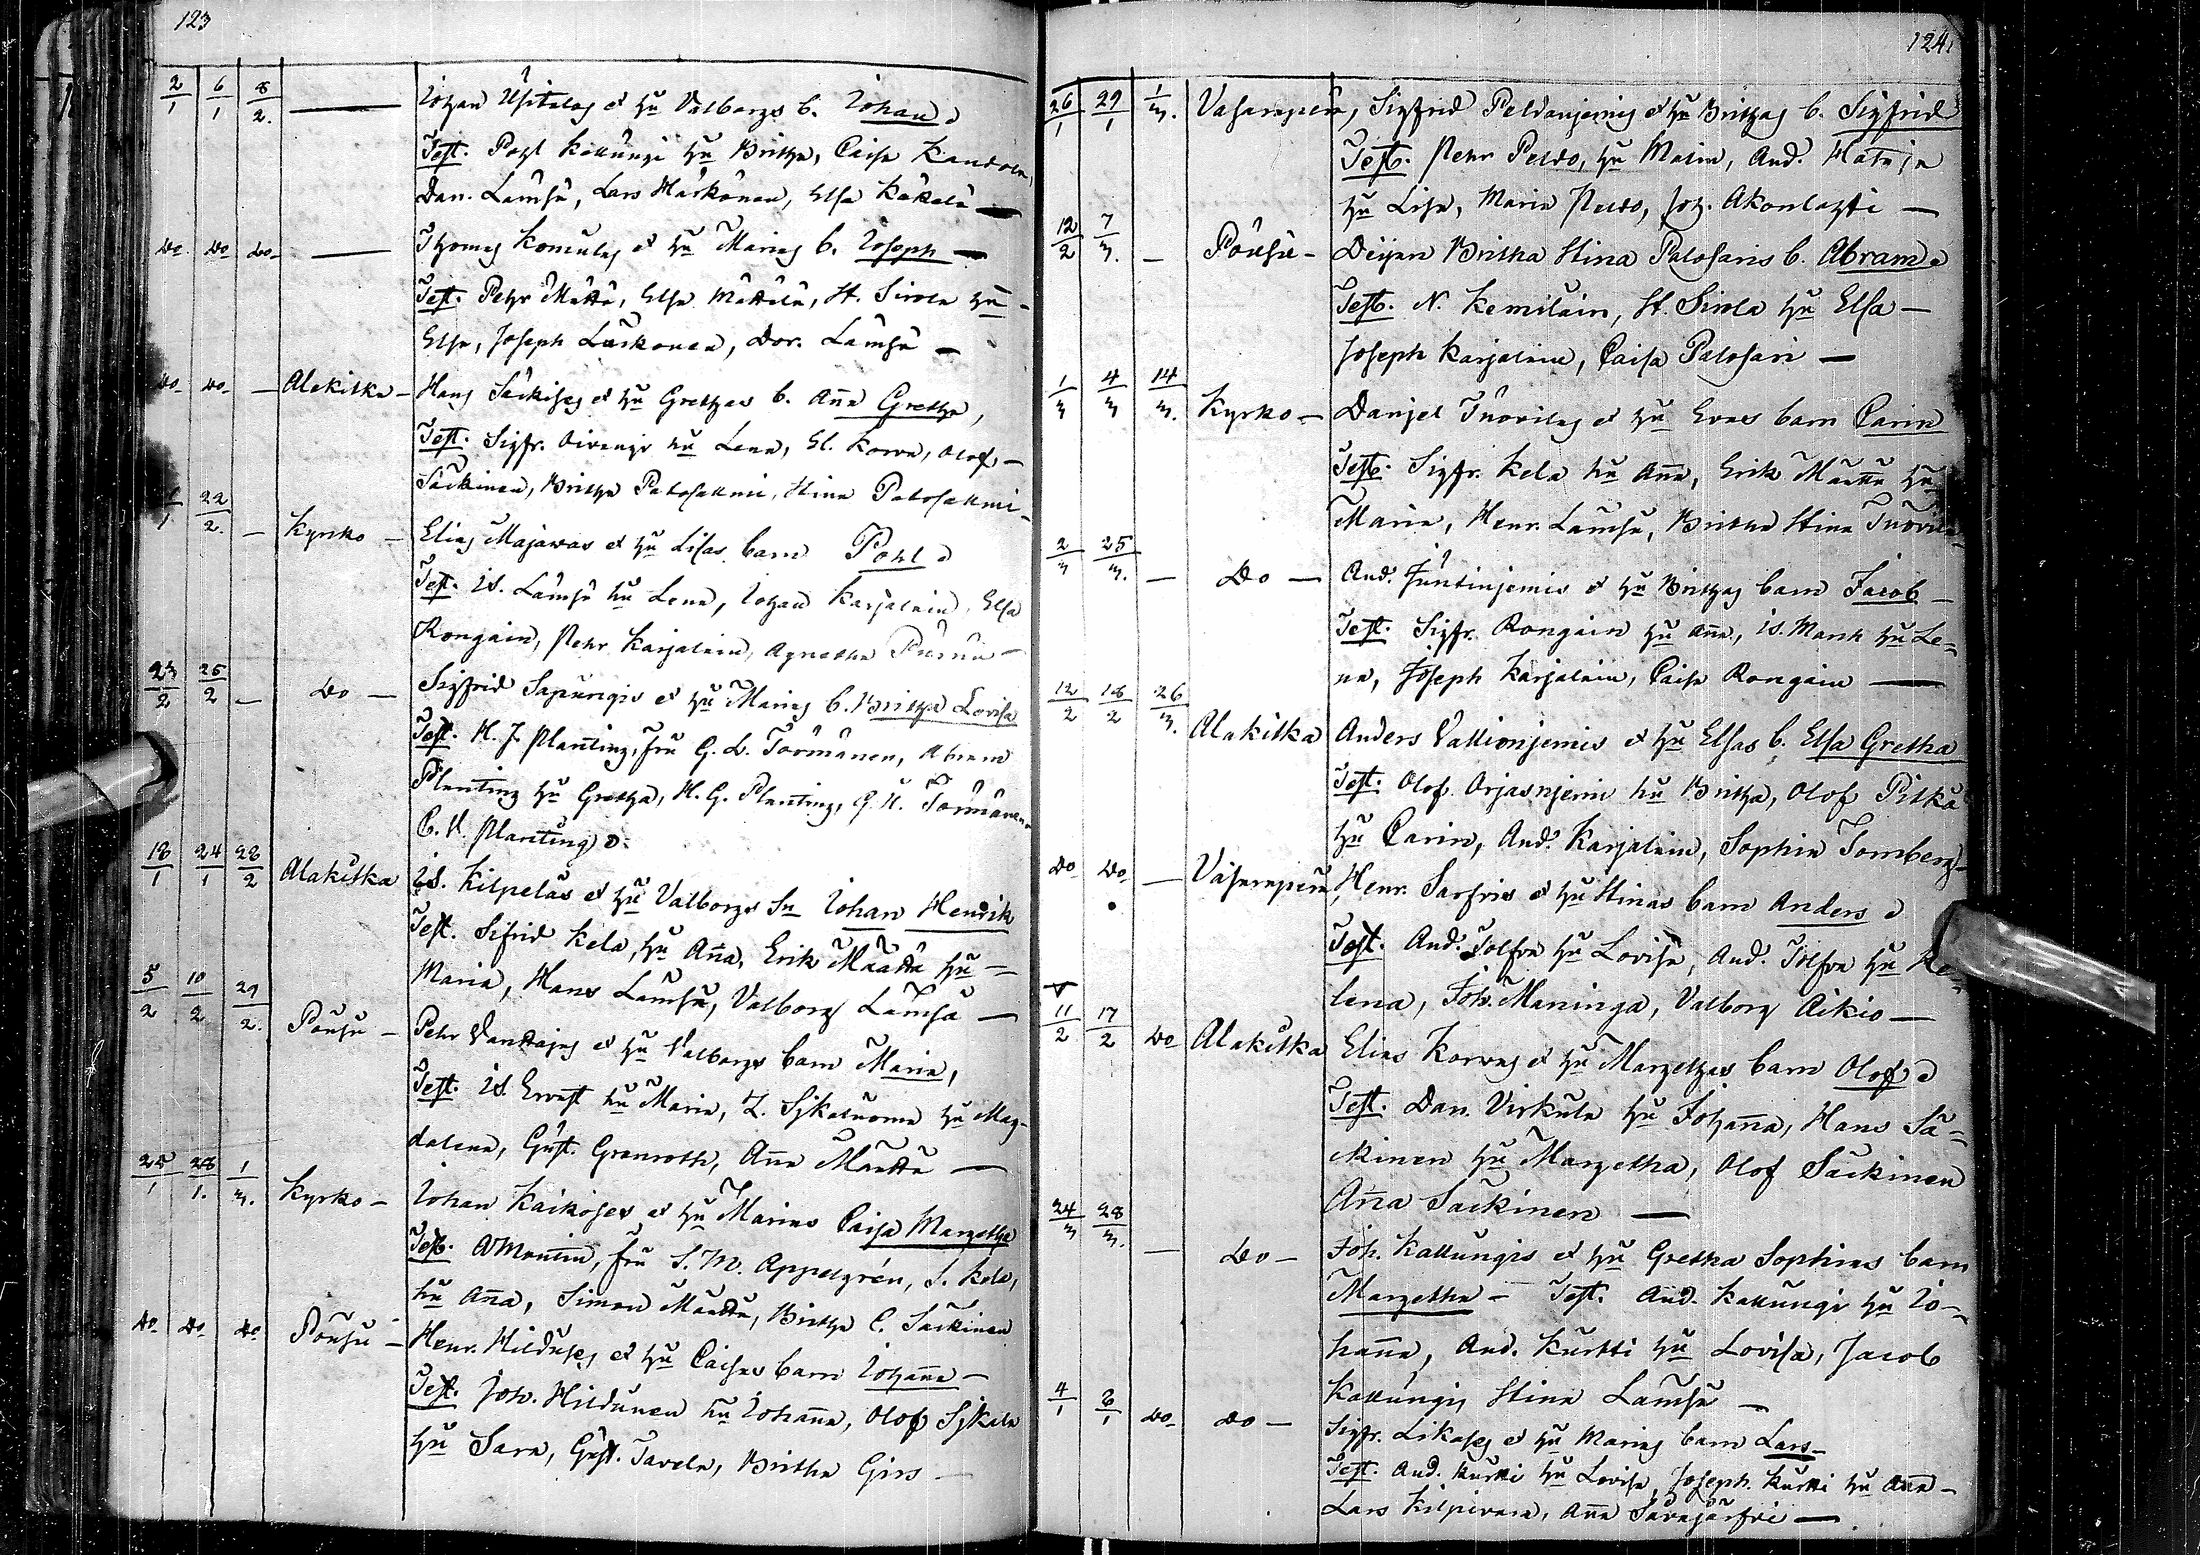 123
2/1 6/1 8/2. — Johan Usitalos et hu Valborgs b. Johan
Test. Pohl Kallungi hu Britha, Caisa Kandola,
Dan. Lämsä, Lars Härkönen, Elsa Käkelä —
Do. Do Do — Thomas Komulas et hu Marias b. Joseph —
Test. Pehr Määttä, Elsa Määttälä, H. Sirola hu
Elsa, Joseph Läskonen, Dor. Lämsä —
Do Do — Alakitka — Hans Säckises et hu Grethas b. Aña Gretha,
Test. Sigfr. Oivangi hu Lena, El. Korva, Olof
Säckinen, Britha Patosalmi, Stina Patosalmi
/1. 22/2. — Kyrko — Elias Majavas et hu Lisas barn Pohl
Test. Is. Lämsä hu Lena, Johan Karjalain, Elsa
Rongain, Pehr Karjalain, Agnetha
23/2 25/2 — Do — Sigfrid Sapungis et hu Marias b. Britha Lovisa
Test. H. J. Planting, fru G. L. Törmänen, Abram
Planting hu Gretha, H. G. Planting, G. U. Törmänen
C. U. Planting
18/1 24/1 28/2 Alakitka Is. Kilpeläs et hu Valborgs Sn Johan Henrik
Test. Sifrid Kela, hu Aña, Erik Määttä hu
Maria, Hans Lämsä, Valborg Lämsä —
5/2 10/2 29/2. Pousu — Pehr Vanttajas et hu Valborgs barn Maria,
Test. Is. Ervast hu Maria, Z. Sjkaluoma hu Mag-
dalena, Gust. Granroth, Aña Määttä —
25/1 28/1. 1/3. Kyrko — Johan Kaikoses et hu Marias Caisa Margetha
Test. A Montin, fru S. M. Appelgrén, S. Kela,
hu Aña, Simon Määttä, Britha C. Säckinen
Do Do Do Pousu — Henr. Hilduses et hu Caisas barn Johaña —
Test. Joh. Hildunen hu Johaña, Olof Sjkala
hu Sara, Gust. Tavela, Britha Girs —
124.
26/1 29/1 1/3. Vasaraperä, Sigfrid Peldanjemis et hu Brithas b. Sigfrid
Test. Pehr Peldo, hu Malin, And. Hataja
hu Lisa, Maria Peldo, Joh. Akonlahti —
12/2 7/3. — Pousu — Deijan Britha Stina Patosaris b. Abram
Test. N. Kemilain, H. Sirola hu Elsa —
Joseph Karjalain, Caisa Patosari —
1/3 4/3 14/3. Kyrko — Danjel Tuovilas et hu Evas barn Carin
Test. Sigfr. Kela hu Aña, Erik Määttä hu
Maria, Henr. Lämsä, Britha Stina Tuovila
2/3 25/3. — Do — And. Juntinjemis et hu Brithas barn Jacob —
Test. Sigfr. Rongain hu Aña, Is. Mank hu Le-
na, Joseph Karjalain, Caisa Rongain —
12/2 18/2 26/3. Alakitka Anders Vallionjemis et hu Elsas b. Elsa Gretha
Test. Olof Orjasnjemi hu Britha, Olof Pitkä
hu Carin, And. Karjalain, Sophia Tornberg
Do Do — Vasaraperä, Henr. Sarfvis et hu Stinas barn Anders
Test. And. Tolfva hu Lovisa, And. Tolfva hu He-
lena, Joh. Maninga, Valborg Aikio —
11/2 17/2 Do Alakitka Elias Korvas et hu Margethas barn Olof
Test. Dan. Virkula hu Johaña, Hans Sä-
ckinen hu Margetha, Olof Säckinen
Aña Säckinen —
24/3 28/3. — Do — Joh. Kallungis et hu Gretha Sophias barn
Margetha — Test. And. Kallungi hu Jo-
haña, And. Kurtti hu Lovisa, Jacob
Kallungi, Stina Lämsä —
4/1 6/1 Do Do — Sigfr. Likases et hu Marias barn Lars —
Test. And. Kurtti hu Lovisa, Joseph Kurtti hu Aña —
Lars Kilpivara, Aña Särajärfvi —